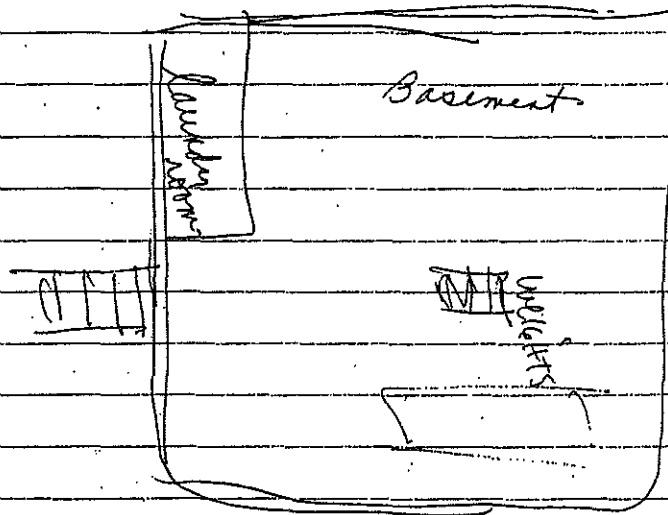 Basement
Laundry
room
Weights